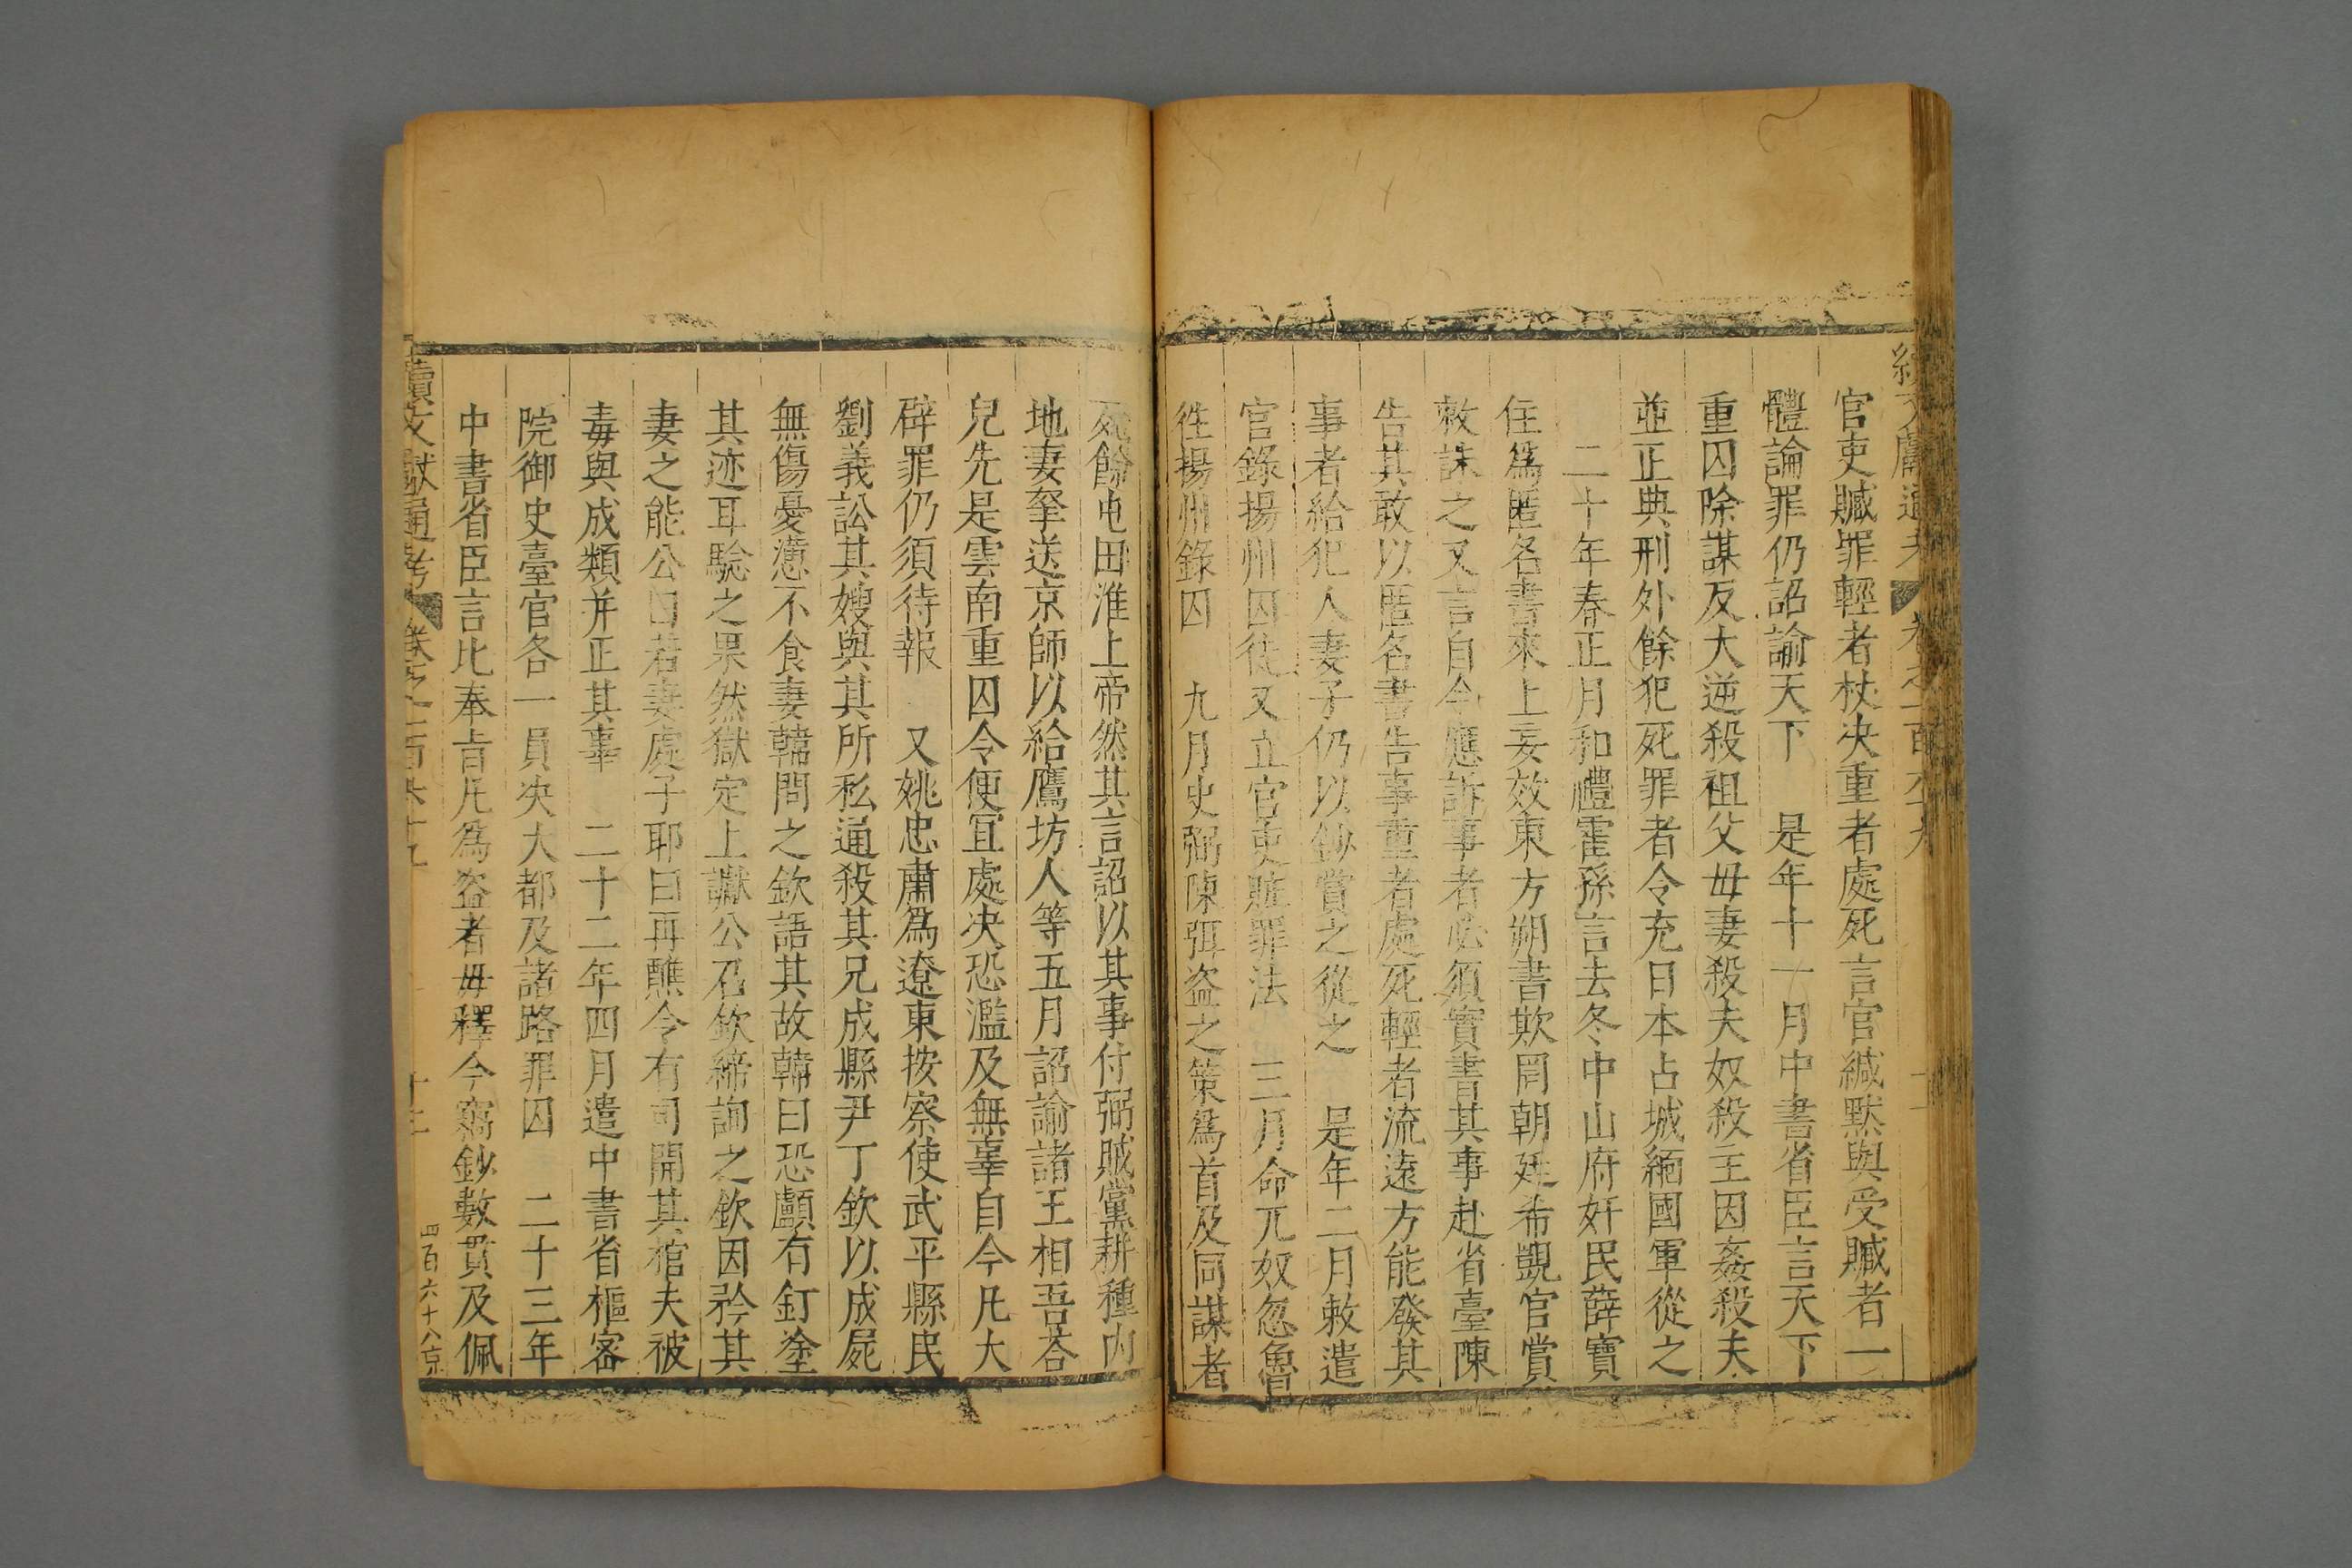 官吏贓罪輕者杖决重者處死言官緘默與受贓者一
體論罪仍詔諭天下　是年十一月中書省臣言天下
重囚除謀反大逆殺祖父母妻殺夫奴殺主因姦殺夫
並正典刑外餘犯死罪者令充日本占城緬國軍從之
二十年春正月和禮霍孫言去冬中山府奸民薛寶
住爲匿名書來上妄效東方朔書欺罔朝廷希覬官賞
敕誅之又言自今應訴事者必須實書其事赴省臺陳
告其敢以匿名書告事重者處死輕者流遠方能發其
事者給犯人妻子仍以鈔賞之從之　是年二月敕遣
官錄揚州囚徒又立官吏贓罪法　三月命兀奴忽魯
徃揚州錄囚　九月史弼陳弭盗之策爲首及同謀者
死餘屯田淮上帝然其言詔以其事付弼賊黨耕種内
地妻孥送京師以給鷹坊人等五月詔諭諸王相吾荅
兒先是雲南重囚令便冝處决恐濫及無辜自今凡大
辟罪仍須待報　又姚忠肅爲遼東按察使武平縣民
劉義訟其嫂與其所私通殺其兄成縣尹丁欽以成屍
無傷憂懣不食妻韓問之欽語其故韓曰恐顱有釘塗
其迹耳驗之果然獄定上讞公召欽諦詢之欽因矜其
妻之能公曰若妻處子耶曰再醮令有司開其棺夫被
毒與成類并正其辜　二十二年四月遣中書省樞密
院御史臺官各一員决大都及諸路罪囚　二十三年
中書省臣言比奉旨凡爲盗者毋釋今竊鈔數貫及佩
續文獻通考　卷之一百六十九　十三
四百六十八京